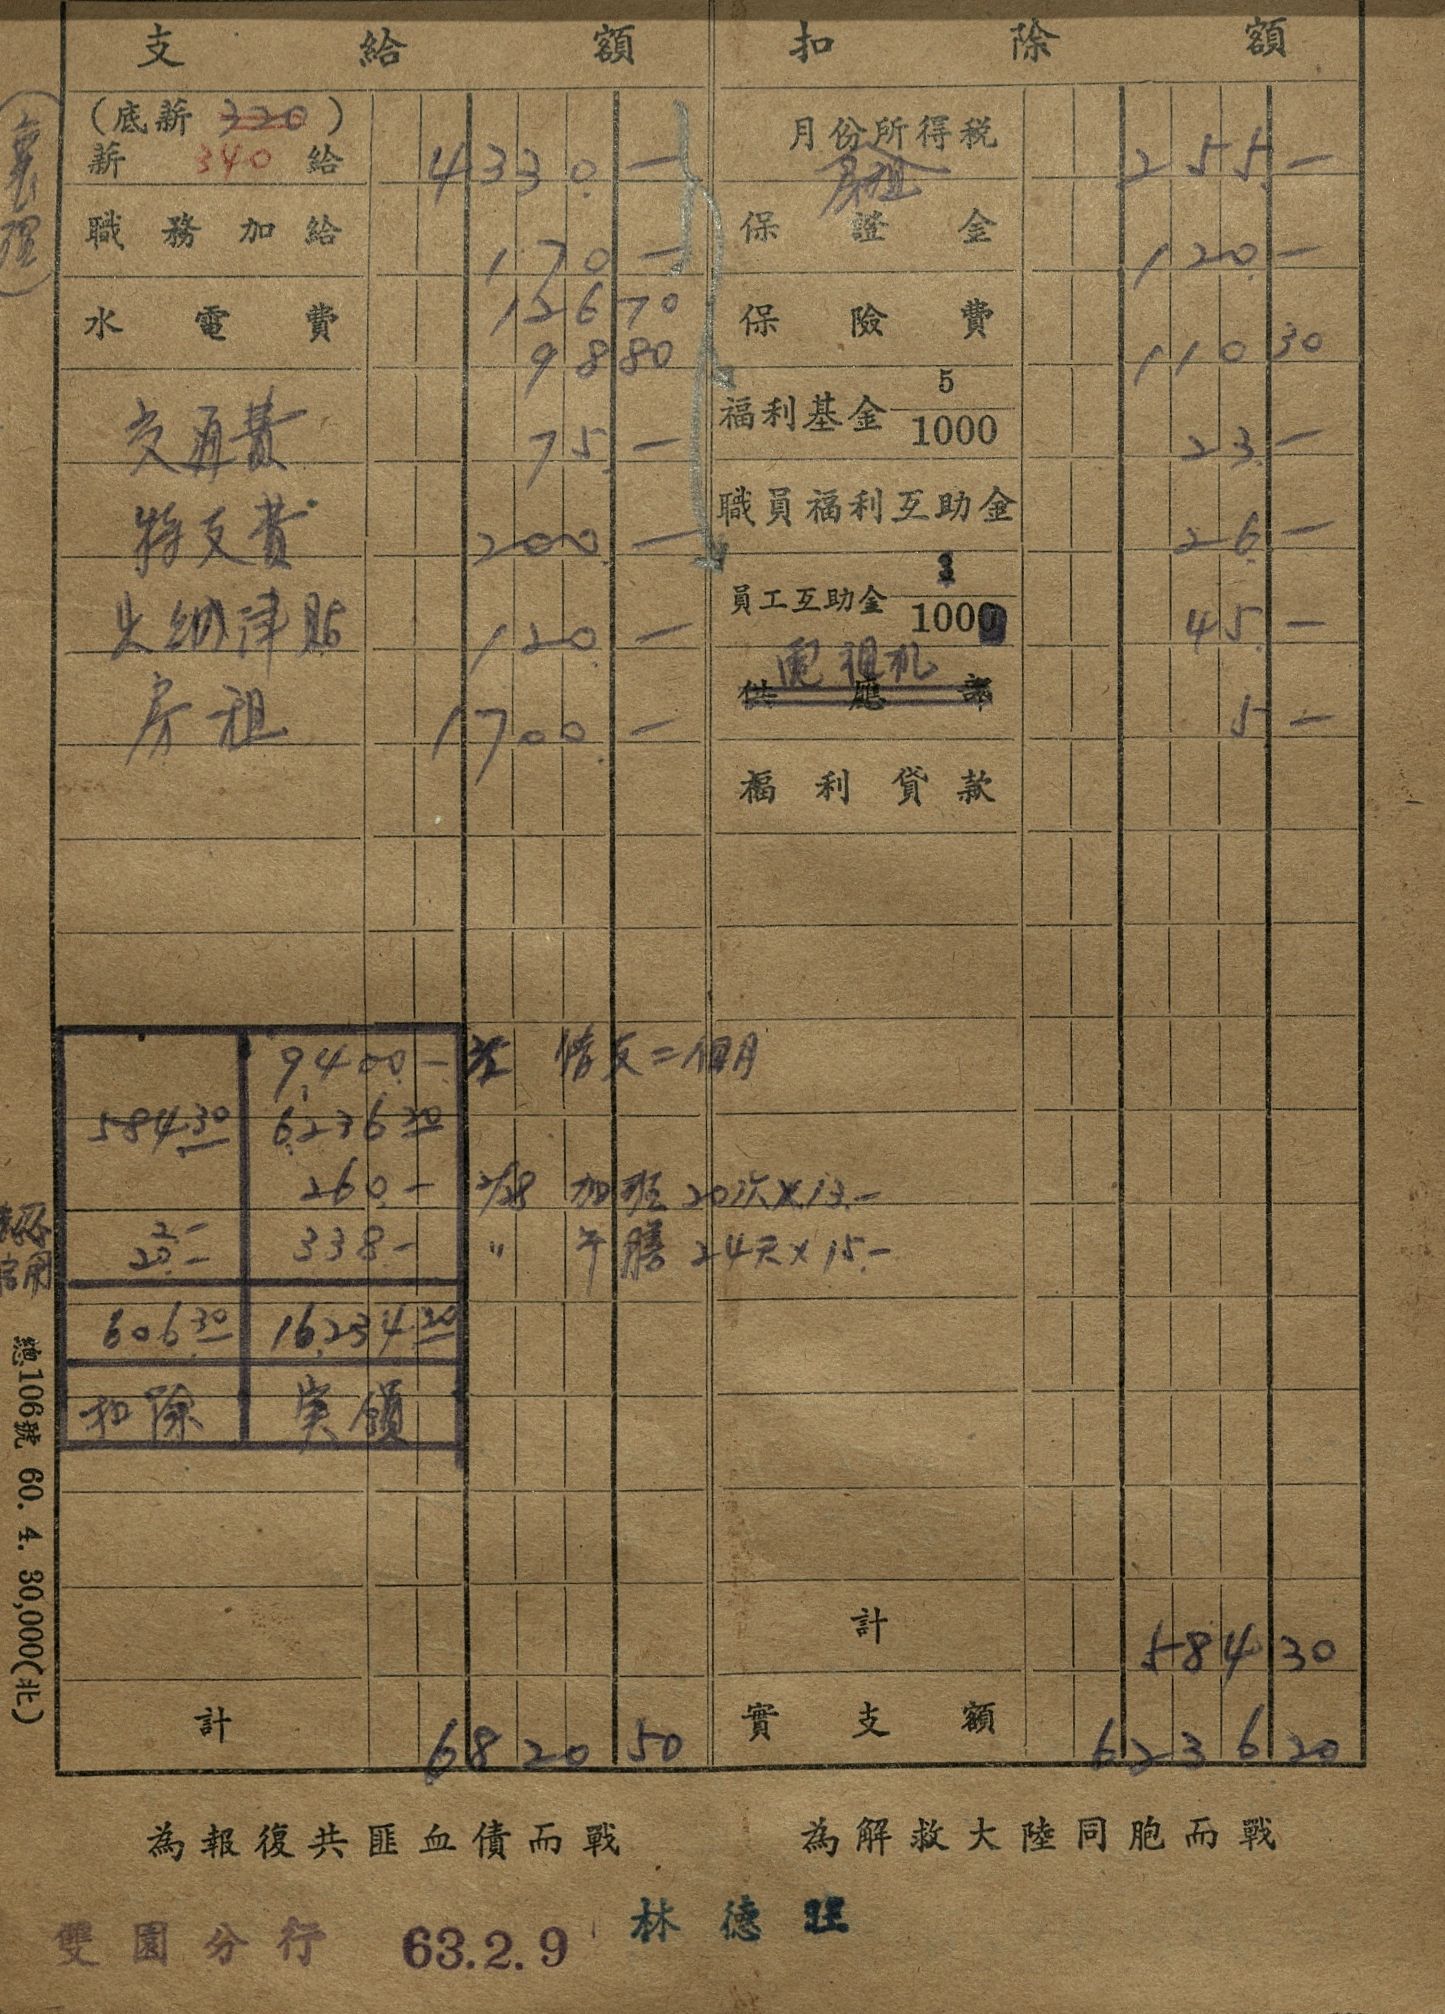 支給額
(底薪 220)
薪 340 給 4330.—
職務加給 170—
水電費 12670
9880
交通費 75.—
特支費 200.—
出納津貼 120.—
房租 1700.—
扣除額
月份所得稅 255.—
房租
保證金 120.—
保險費 11030
福利基金 5/1000 23.—
職員福利互助金 26.—
員工互助金 3/1000 45.—
供應部 5—
福利貸款
9,400.—
借支二個月
584.30 6,236.20
260.— 2/28 加班 20次×13.—
2.—
20.— 338.— 〃 午膳 24天×15.—
606.30 16,234.20
扣除 実領
計 584 30
計 6820 50
實支額 6236 20
總106號 60. 4. 30,000(北)
為報復共匪血債而戰
為解救大陸同胞而戰
雙園分行 63.2.9 林德旺